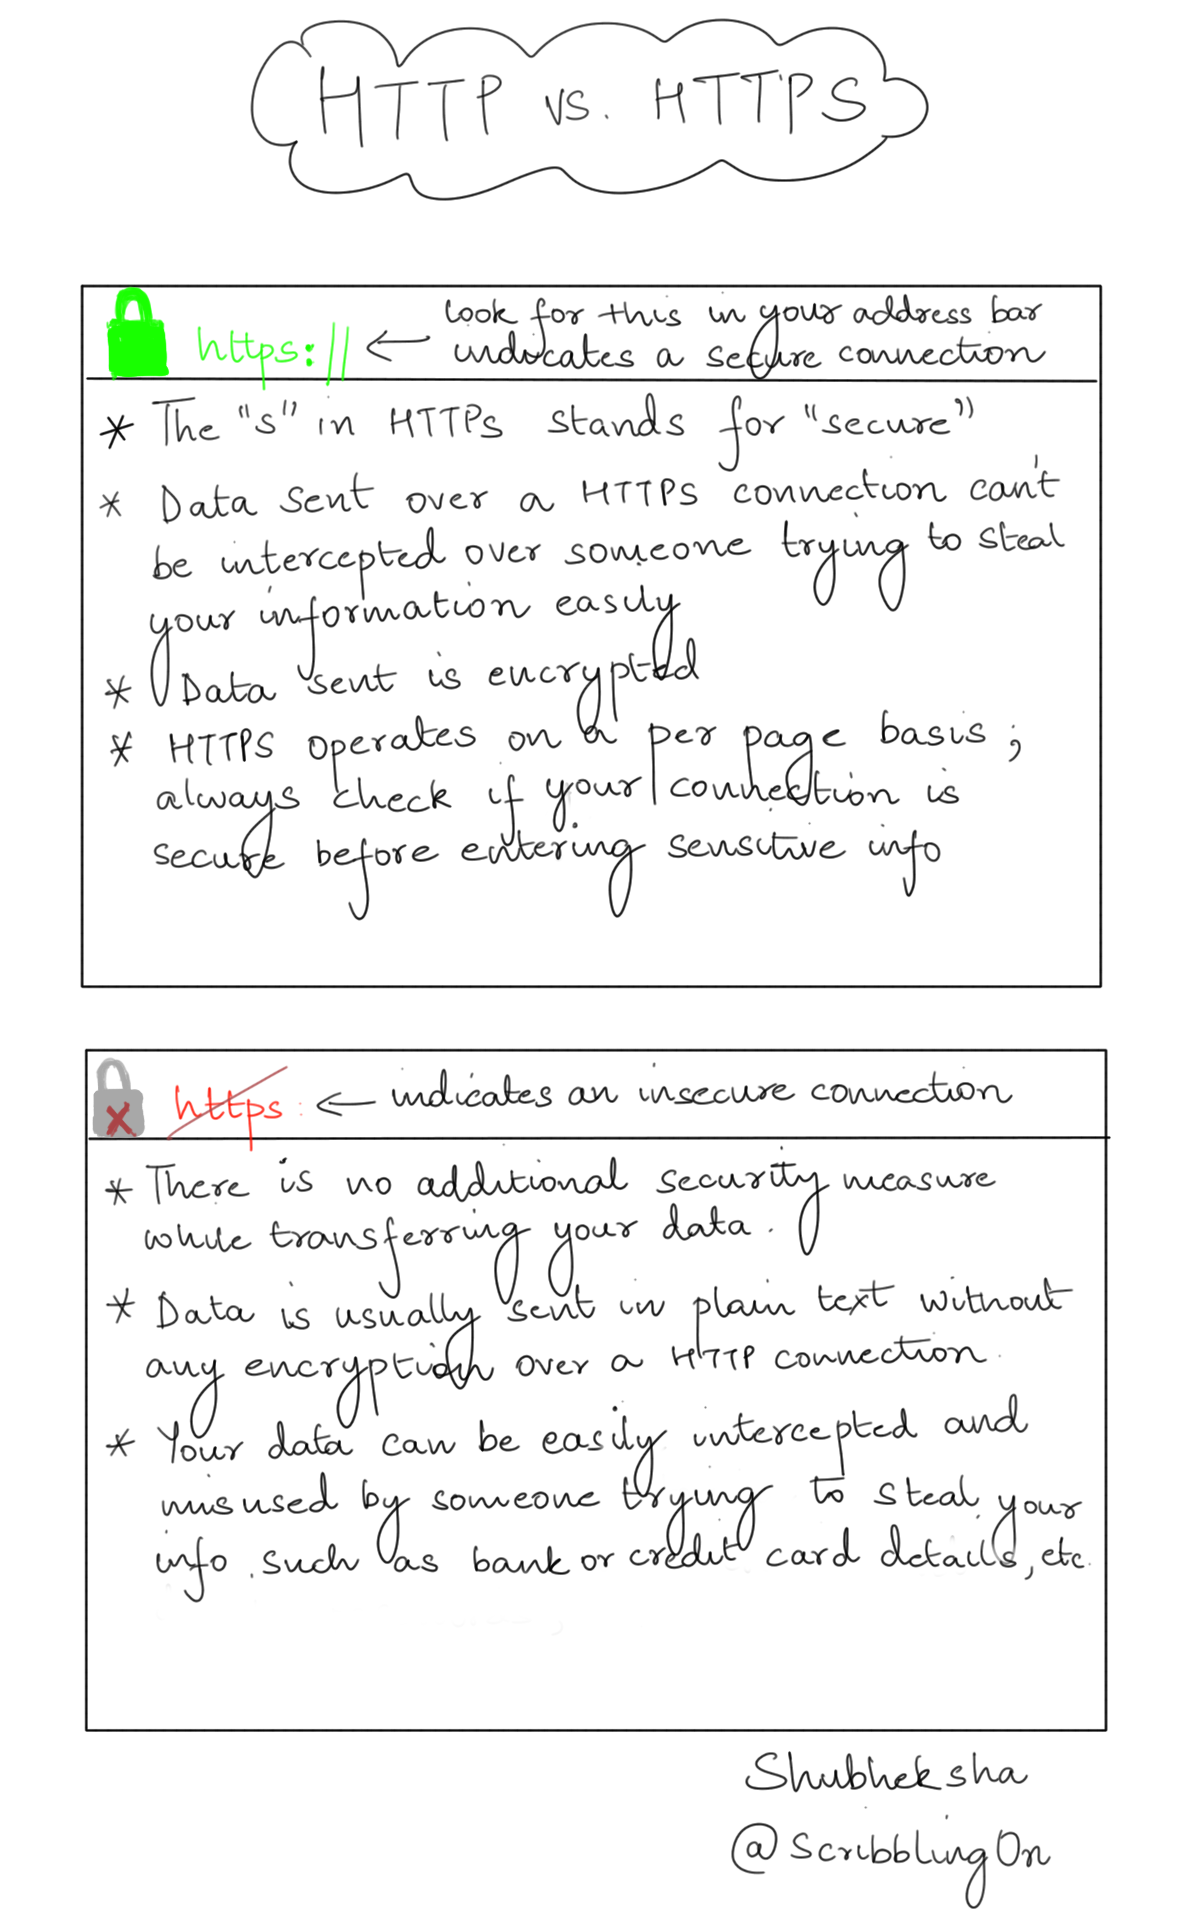 HTTP vs. HTTPS
https:// ← look for this in your address bar
indicates a secure connection
* The "s" in HTTPs stands for "secure"
* Data sent over a HTTPS connection can't
be intercepted over someone trying to steal
your information easily
* Data sent is encrypted
* HTTPS operates on a per page basis ;
always check if your connection is
secure before entering sensitive info
https: ← indicates an insecure connection
* There is no additional security measure
while transferring your data.
* Data is usually sent in plain text without
any encryption over a HTTP connection.
* Your data can be easily intercepted and
misused by someone trying to steal your
info. such as bank or credit card details, etc.
Shubheksha
@ScribblingOn